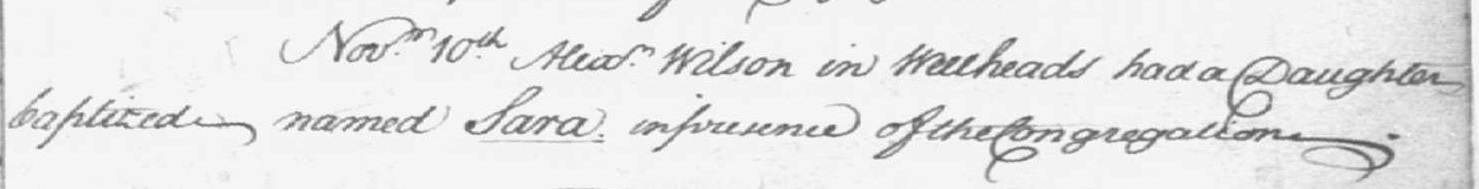 Nov.m 10th Alexr. Wilson in Wellheads had a Daughter
baptized named Sara. in presence of the Congregation.